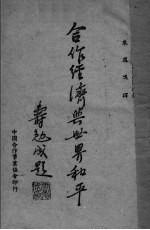 朱鴻禧譯
合作經濟與世界和平
壽勉成題
中國合作事業協會印行